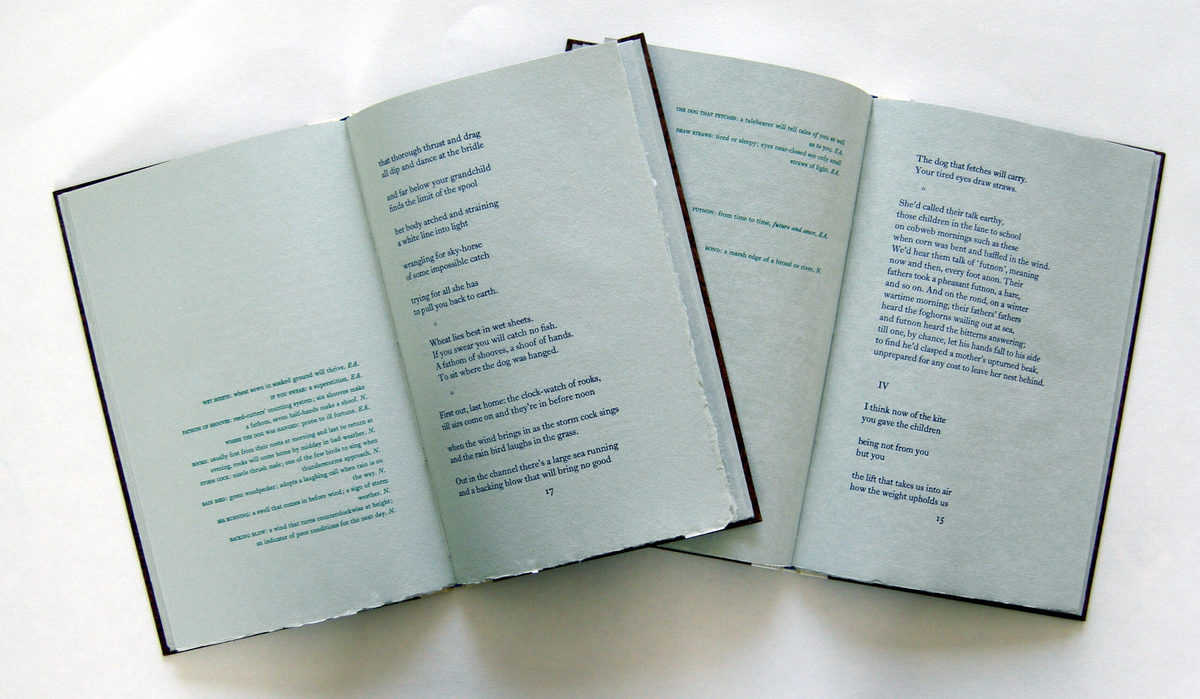 WET SHEETS: wheat sown in soaked ground will thrive, E.A.
IF YOU SWEAR: a superstition, E.A.
FATHOM OF SHOOVES: reed-cutters' counting system; six shooves make
a fathom, seven half-hands make a shoof. N.
WHERE THE DOG WAS HANGED: prone to ill fortune. E.A.
ROOKS: usually first from their roosts at morning and last to return at
evening, rooks will come home by midday in bad weather, N.
STORM COCK: mistle thrush male; one of the few birds to sing when
thunderstorms approach, N.
RAIN BIRD: green woodpecker; adopts a laughing call when rain is on
the way, N.
SEA RUNNING: a swell that comes in before wind; a sign of storm
weather, N.
BACKING BLOW: a wind that turns counterclockwise at height;
an indicator of poor conditions for the next day, N.
that thorough thrust and drag
all dip and dance at the bridle
and far below your grandchild
finds the limit of the spool
her body arched and straining
a white line into light
wrangling for sky-horse
of some impossible catch
trying for all she has
to pull you back to earth.
Wheat lies best in wet sheets.
If you swear you will catch no fish.
A fathom of shooves, a shoof of hands.
To sit where the dog was hanged.
First out, last home: the clock-watch of rooks,
till airs come on and they're in before noon
when the wind brings in as the storm cock sings
and the rain bird laughs in the grass.
Out in the channel there's a large sea running
and a backing blow that will bring no good
17
THE DOG THAT FETCHES: a talebearer will tell tales of you as well
as to you, E.A.
DRAW STRAWS: tired or sleepy; eyes near-closed see only small
straws of light, E.A.
FUTNON: from time to time, futnen and anon, E.A.
ROND: a marsh edge of a broad or river, N.
The dog that fetches will carry.
Your tired eyes draw straws.
She'd called their talk earthy,
those children in the lane to school
on cobweb mornings such as these
when corn was bent and baffled in the wind.
We'd hear them talk of 'futnon', meaning
now and then, every foot anon. Their
fathers took a pheasant futnon, a hare,
and so on. And on the rond, on a winter
wartime morning, their fathers' fathers
heard the foghorns wailing out at sea,
and futnon heard the bitterns answering;
till one, by chance, let his hands fall to his side
to find he'd clasped a mother's upturned beak,
unprepared for any cost to leave her nest behind.
IV
I think now of the kite
you gave the children
being not from you
but you
the lift that takes us into air
how the weight upholds us
15